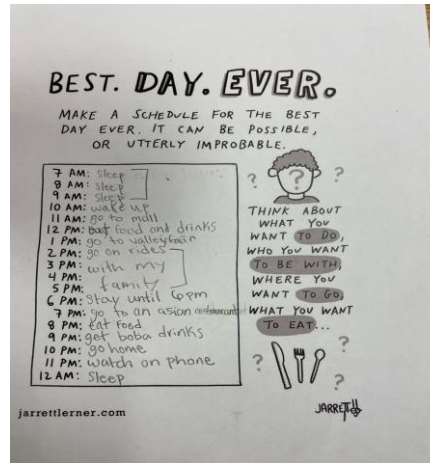 BEST. DAY. EVER.
MAKE A SCHEDULE FOR THE BEST
DAY EVER. IT CAN BE POSSIBLE,
OR UTTERLY IMPROBABLE.
7 AM: Sleep
8 AM: Sleep
9 AM: Sleep
10 AM: wake up
11 AM: go to mall
12 PM: eat food and drinks
1 PM: go to valleyfair
2 PM: go on rides
3 PM: with my
4 PM:
5 PM: family
6 PM: Stay until 6pm
7 PM: go to an asian restaurant
8 PM: eat food
9 PM: get boba drinks
10 PM: go home
11 PM: watch on phone
12 AM: Sleep
? ? ?
THINK ABOUT
WHAT YOU
WANT TO DO,
WHO YOU WANT
TO BE WITH,
WHERE YOU
WANT TO GO,
WHAT YOU WANT
TO EAT...
? ?
?
jarrettlerner.com
JARRETT